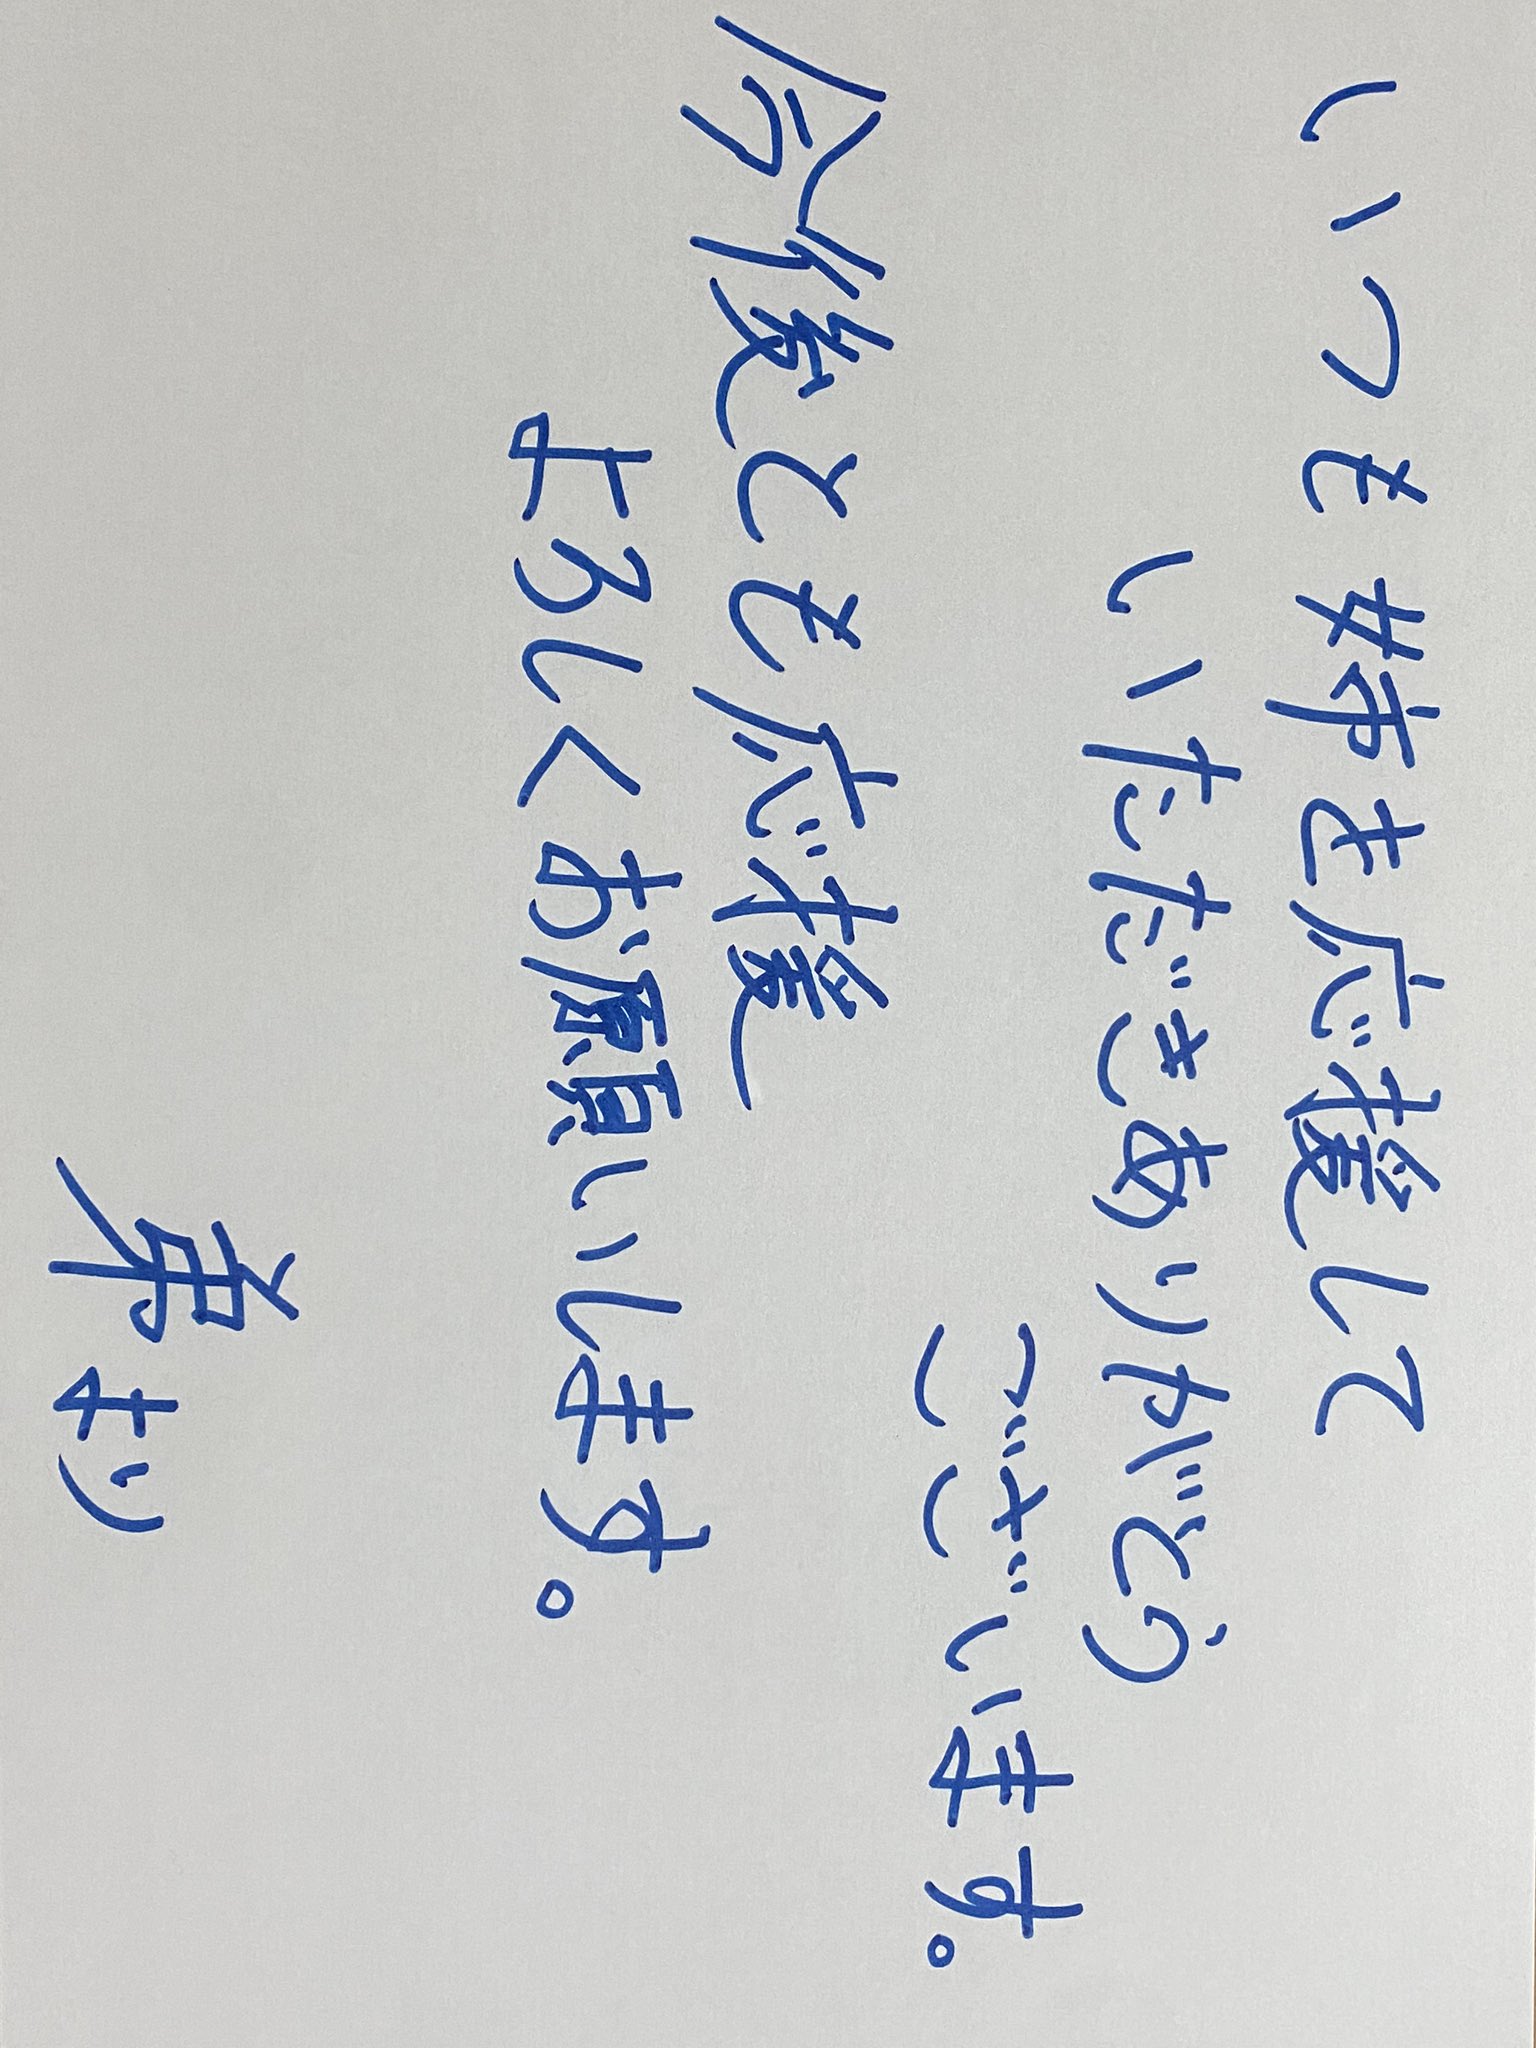 いつも姉を応援して
いただきありがとう
ございます。
今後とも応援
よろしくお願いします。
弟より